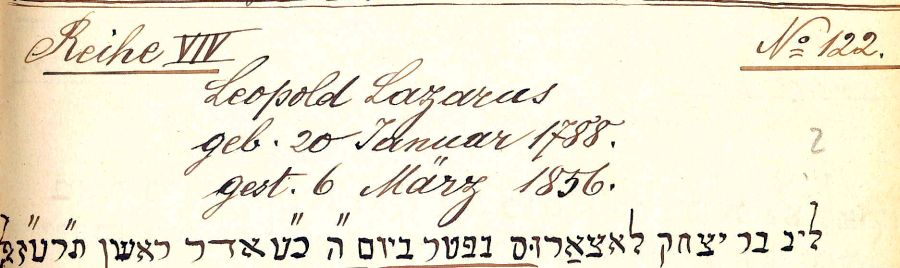 Reihe VIV
No 122.
Leopold Lazarus
geb. 20 Januar 1788.
gest. 6 März 1856.
ליב בר יצחק לאצאַרוס נפטר ביום ה" כ"ט אדר ראשון תרט"ז